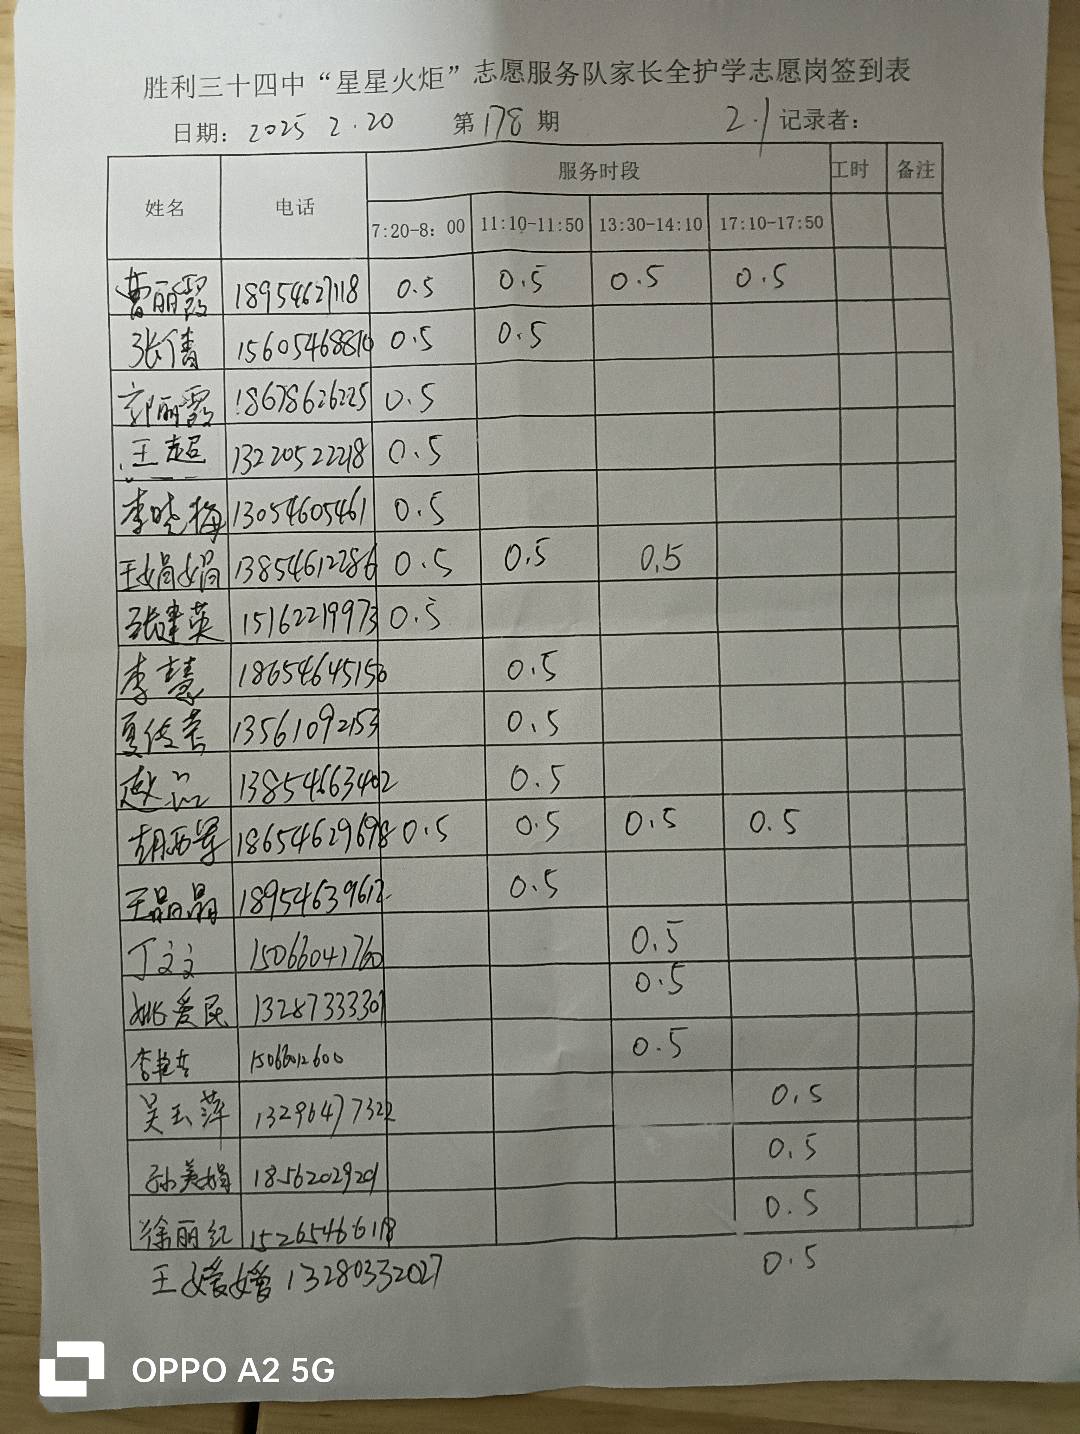 胜利三十四中“星星火炬”志愿服务队家长全护学志愿岗签到表
日期: 2025 2.20 第178期 2.1 记录者:
姓名 电话 服务时段 工时 备注
7:20-8:00 11:10-11:50 13:30-14:10 17:10-17:50
曹丽霞 18954627118 0.5 0.5 0.5 0.5
张倩 15605468810 0.5 0.5
郭丽霞 18678626225 0.5
王超 13220522218 0.5
李晓梅 13054605461 0.5
王娟娟 13854612286 0.5 0.5 0.5
张建英 15162219973 0.5
李慧 18654645156 0.5
夏传荣 13561092153 0.5
赵 13854663402 0.5
胡西军 18654629698 0.5 0.5 0.5 0.5
王晶晶 18954639612 0.5
丁文文 15066041760 0.5
姚爱民 13287333301 0.5
李艳 15066012600 0.5
吴玉萍 13296477322 0.5
孙美娟 18562029201 0.5
徐丽红 15265466118 0.5
王媛媛 13280332027 0.5
OPPO A2 5G